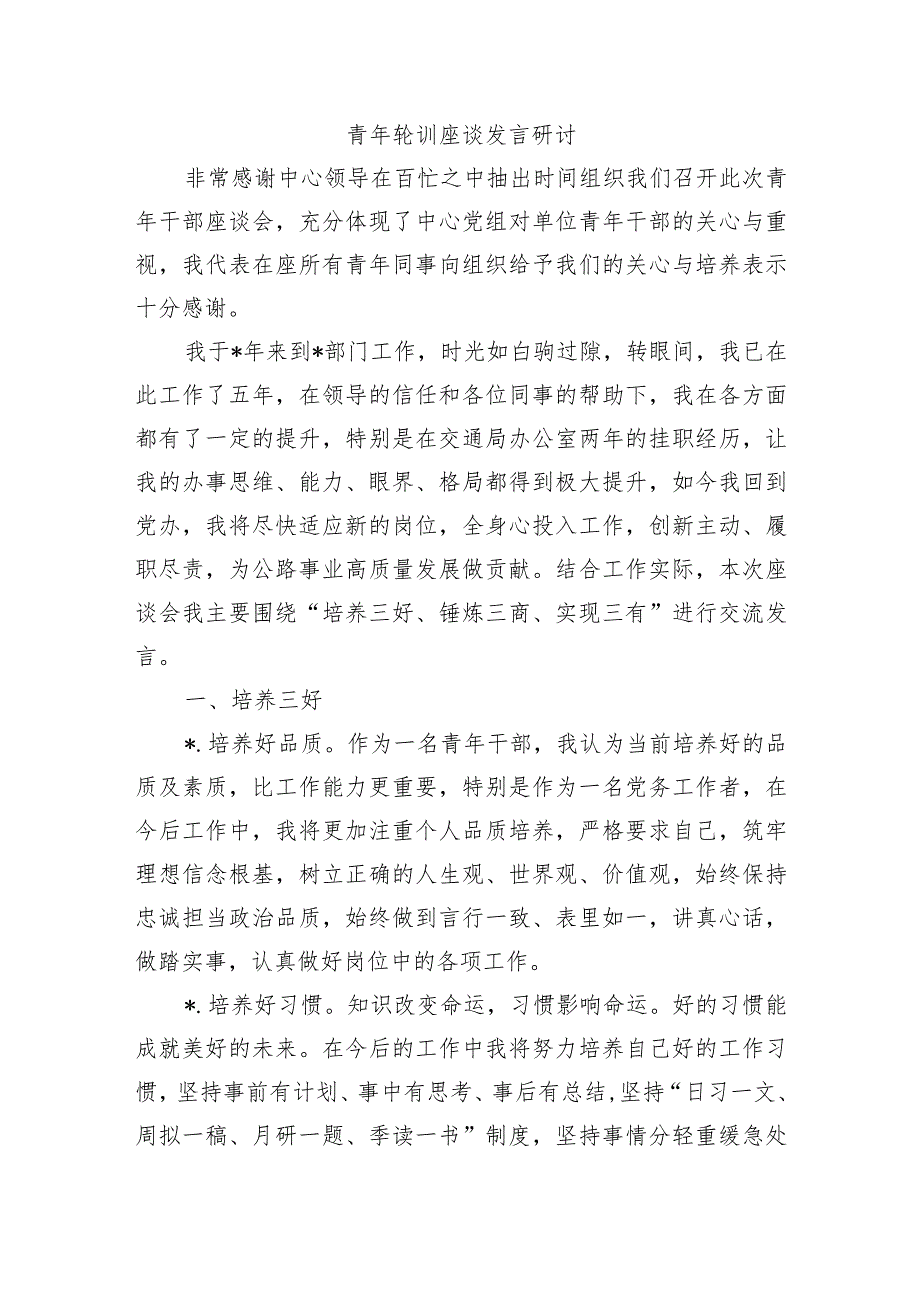 青年轮训座谈发言研讨
非常感谢中心领导在百忙之中抽出时间组织我们召开此次青
年干部座谈会，充分体现了中心党组对单位青年干部的关心与重
视，我代表在座所有青年同事向组织给予我们的关心与培养表示
十分感谢。
我于*年来到*部门工作，时光如白驹过隙，转眼间，我已在
此工作了五年，在领导的信任和各位同事的帮助下，我在各方面
都有了一定的提升，特别是在交通局办公室两年的挂职经历，让
我的办事思维、能力、眼界、格局都得到极大提升，如今我回到
党办，我将尽快适应新的岗位，全身心投入工作，创新主动、履
职尽责，为公路事业高质量发展做贡献。结合工作实际，本次座
谈会我主要围绕“培养三好、锤炼三商、实现三有”进行交流发
言。
一、培养三好
*.培养好品质。作为一名青年干部，我认为当前培养好的品
质及素质，比工作能力更重要，特别是作为一名党务工作者，在
今后工作中，我将更加注重个人品质培养，严格要求自己，筑牢
理想信念根基，树立正确的人生观、世界观、价值观，始终保持
忠诚担当政治品质，始终做到言行一致、表里如一，讲真心话，
做踏实事，认真做好岗位中的各项工作。
*.培养好习惯。知识改变命运，习惯影响命运。好的习惯能
成就美好的未来。在今后的工作中我将努力培养自己好的工作习
惯，坚持事前有计划、事中有思考、事后有总结,坚持“日习一文、
周拟一稿、月研一题、季读一书”制度，坚持事情分轻重缓急处